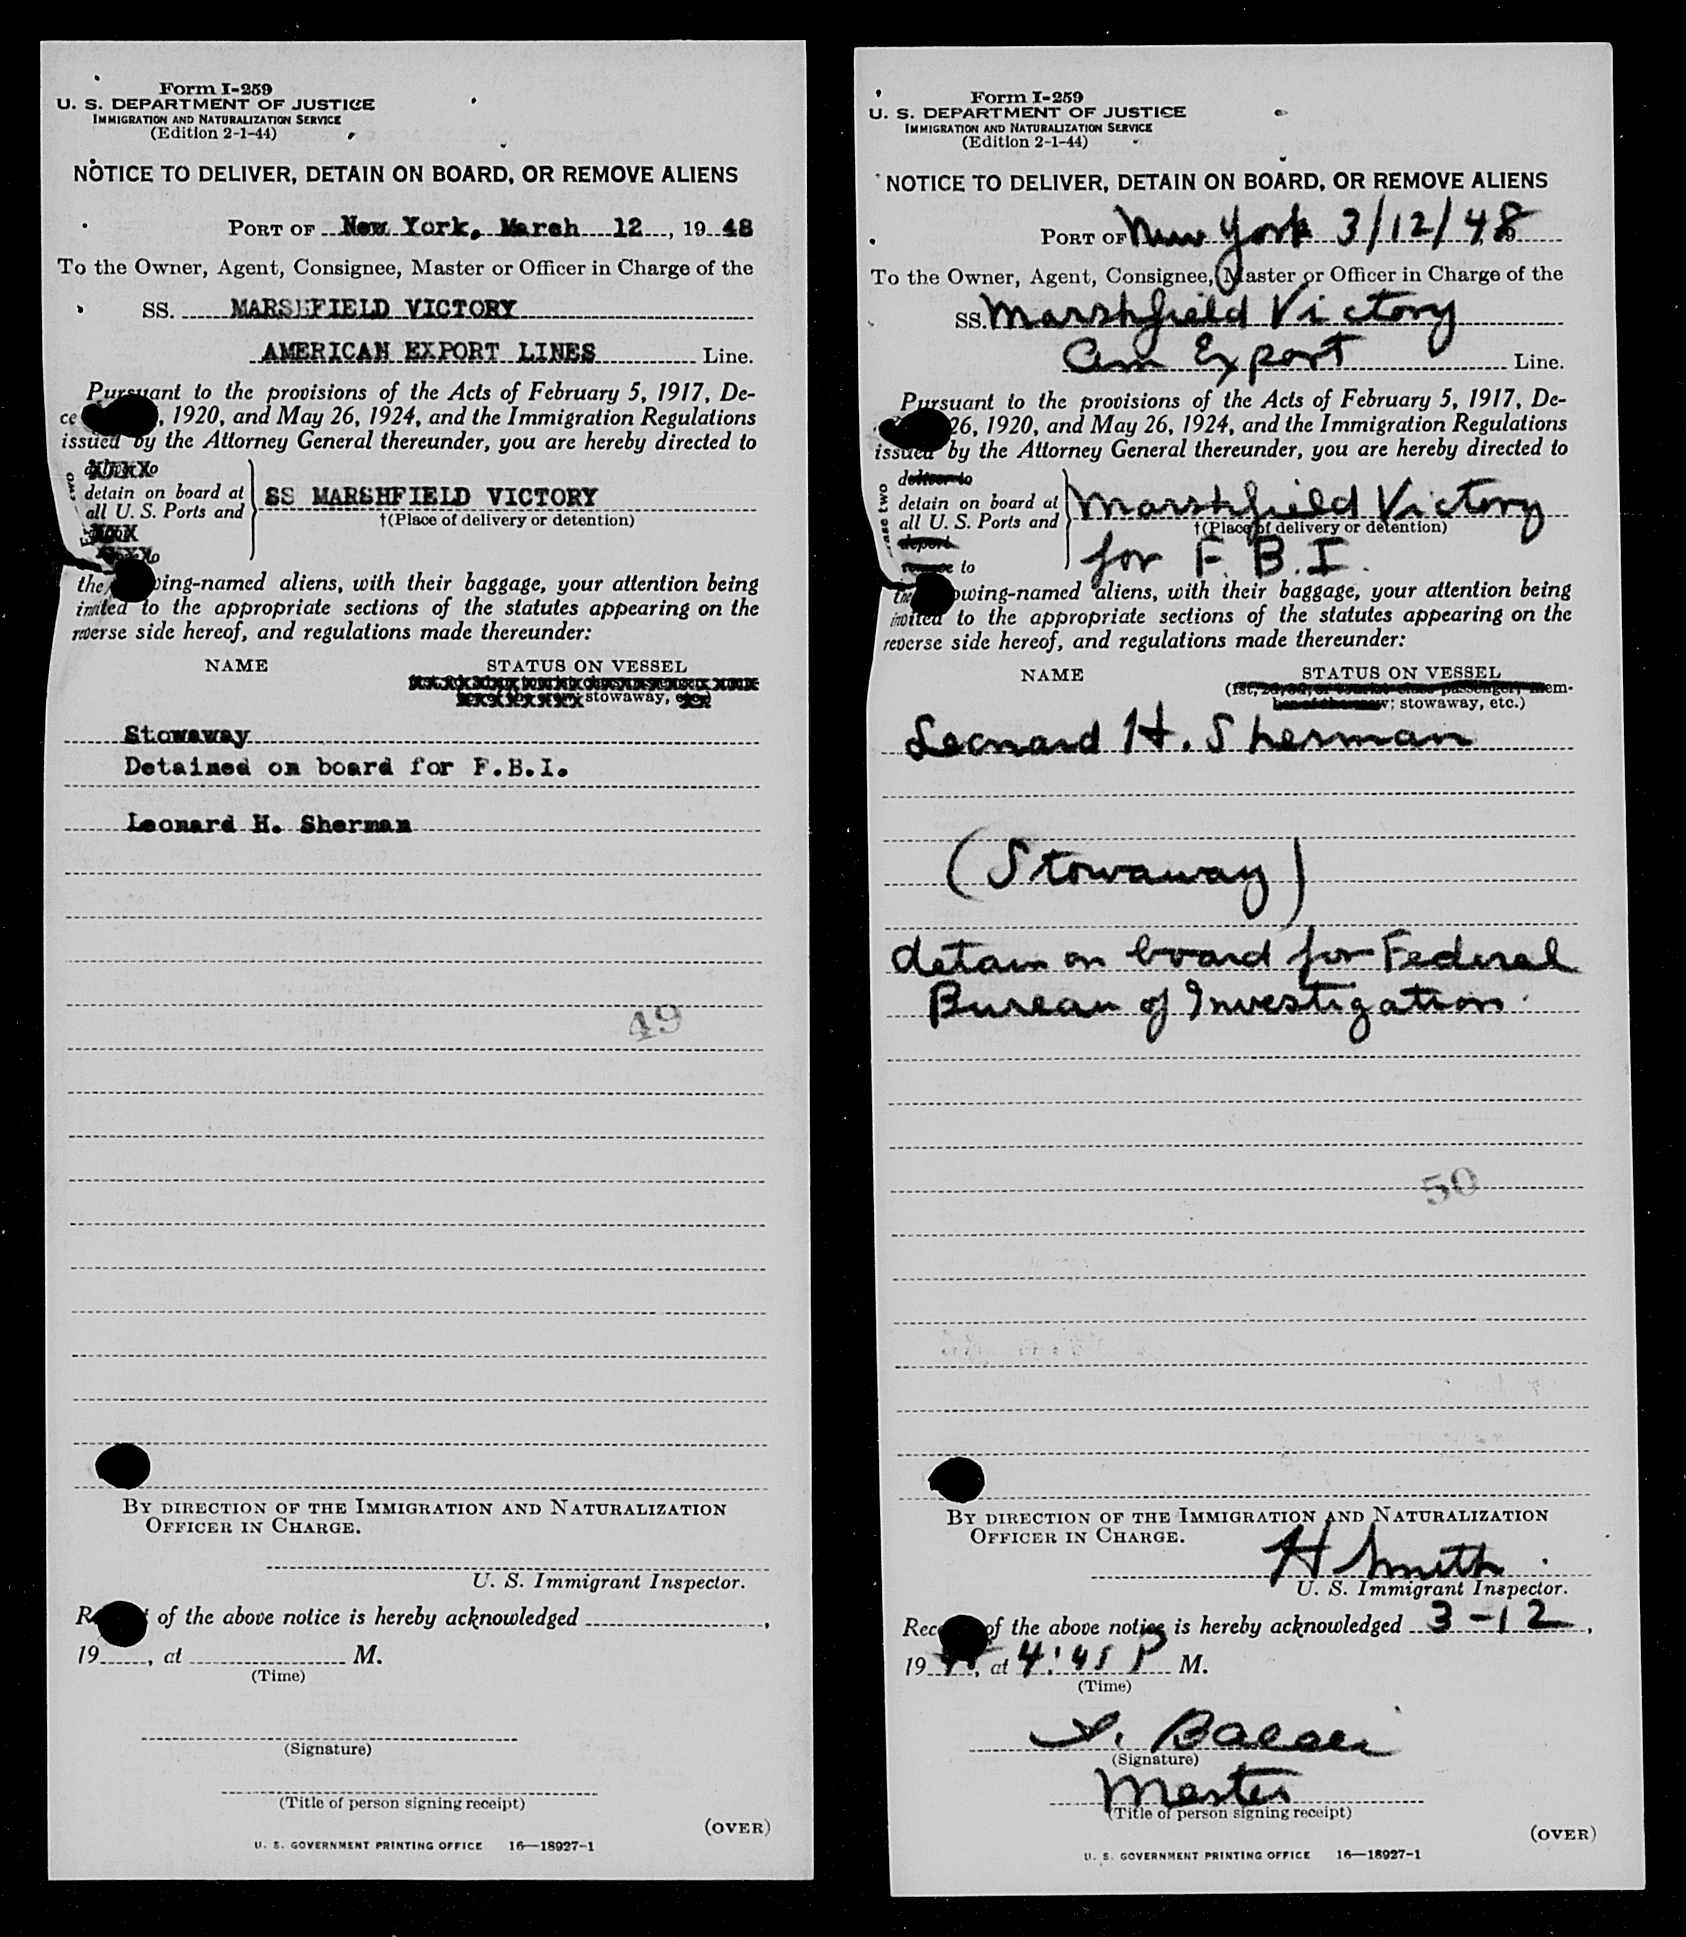 Form I-259
U. S. DEPARTMENT OF JUSTICE
IMMIGRATION AND NATURALIZATION SERVICE
(Edition 2-1-44)
NOTICE TO DELIVER, DETAIN ON BOARD, OR REMOVE ALIENS
PORT OF New York, March 12, 1948
To the Owner, Agent, Consignee, Master or Officer in Charge of the
SS. MARSHFIELD VICTORY
AMERICAN EXPORT LINES Line.
Pursuant to the provisions of the Acts of February 5, 1917, De-
ce , 1920, and May 26, 1924, and the Immigration Regulations
issued by the Attorney General thereunder, you are hereby directed to
detain on board at
all U. S. Ports and
SS MARSHFIELD VICTORY
†(Place of delivery or detention)
the wing-named aliens, with their baggage, your attention being
invited to the appropriate sections of the statutes appearing on the
reverse side hereof, and regulations made thereunder:
NAME STATUS ON VESSEL
stowaway,
Stowaway
Detained on board for F.B.I.
Leonard H. Sherman
49
BY DIRECTION OF THE IMMIGRATION AND NATURALIZATION
OFFICER IN CHARGE.
U. S. Immigrant Inspector.
R t of the above notice is hereby acknowledged ,
19 , at M.
(Time)
(Signature)
(Title of person signing receipt)
(OVER)
U. S. GOVERNMENT PRINTING OFFICE 16—18927-1
Form I-259
U. S. DEPARTMENT OF JUSTICE
IMMIGRATION AND NATURALIZATION SERVICE
(Edition 2-1-44)
NOTICE TO DELIVER, DETAIN ON BOARD, OR REMOVE ALIENS
PORT OF New York 3/12/48
To the Owner, Agent, Consignee, Master or Officer in Charge of the
SS. Marshfield Victory
Am Export Line.
Pursuant to the provisions of the Acts of February 5, 1917, De-
26, 1920, and May 26, 1924, and the Immigration Regulations
issued by the Attorney General thereunder, you are hereby directed to
deliver to
detain on board at
all U. S. Ports and
deport
to
Marshfield Victory
†(Place of delivery or detention)
for F.B.I.
the owing-named aliens, with their baggage, your attention being
invited to the appropriate sections of the statutes appearing on the
reverse side hereof, and regulations made thereunder:
NAME STATUS ON VESSEL
(1st, 2d, 3d, or tourist class passenger; mem-
ber of the crew; stowaway, etc.)
Leonard H. Sherman
(Stowaway)
detain on board for Federal
Bureau of Investigation.
50
BY DIRECTION OF THE IMMIGRATION AND NATURALIZATION
OFFICER IN CHARGE.
H Smith
U. S. Immigrant Inspector.
Rec of the above notice is hereby acknowledged 3-12,
19 , at 4:45 P M.
(Time)
(Signature)
Master
(Title of person signing receipt)
(OVER)
U. S. GOVERNMENT PRINTING OFFICE 16—18927-1